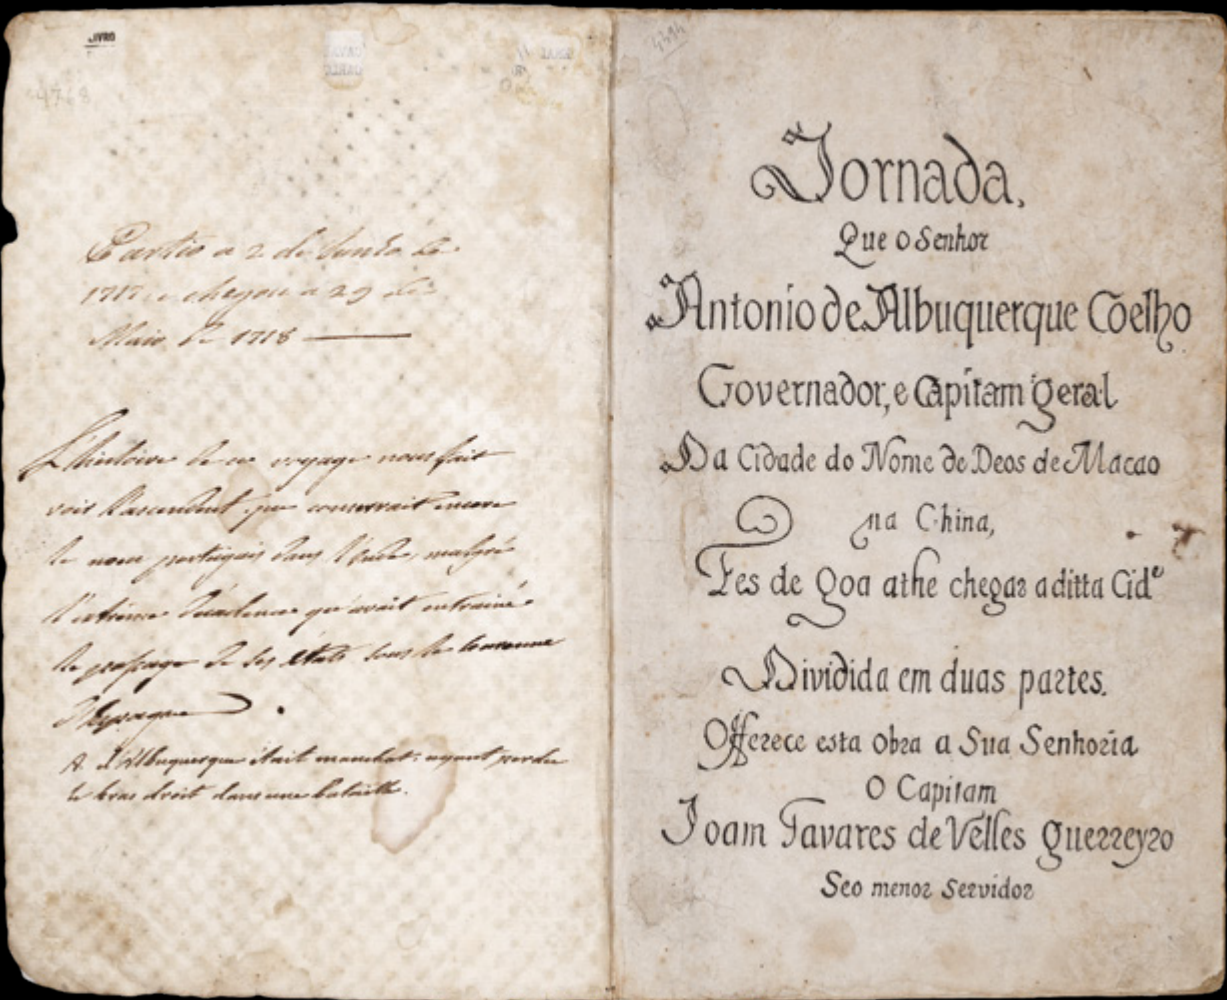 LIVRO
4768
Partio a 2 de Junho de
1717 e chegou a 29 de
Maio de 1718
L'histoire de ce voyage nous fait
voir l'ascendant que conservait encore
le nom portugais dans l'Inde, malgré
l'extrême décadence qu'avait entrainé
le passage de ses états sous la couronne
d'Espagne.
A. d'Albuquerque était manchot: ayant perdu
le bras droit dans une bataille.
Jornada,
Que o Senhor
Antonio de Albuquerque Coelho
Governador, e Capitam geral
Da Cidade do Nome de Deos de Macao
na China,
Fes de Goa athe chegar a ditta Cidᵉ
Dividida em duas partes.
Offerece esta obra a Sua Senhoria
O Capitam
Joam Tavares de Velles Guerreyro
Seo menor Servidor